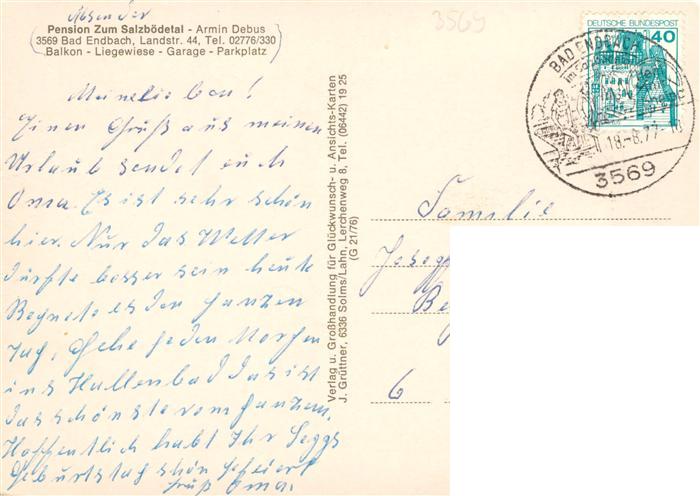 Absender
Pension Zum Salzbödetal - Armin Debus
3569 Bad Endbach, Landstr. 44, Tel. 02776/330
Balkon - Liegewiese - Garage - Parkplatz
Meine lieben!
Einen Gruß aus meinen
Urlaub sendet euch
Oma. Es ist sehr schön
hier. Nur das Wetter
dürfte besser sein heute
Regnete es den ganzen
Tag, Gehe jeden Morgen
ins Hallenbad das ist
das schönste vom ganzen.
Hoffentlich habt Ihr
Geburtstag schön gefeiert
Gruß Oma.
Verlag u. Großhandlung für Glückwunsch- u. Ansichts-Karten
J. Grüttner, 6336 Solms/Lahn, Lerchenweg 8, Tel. (06442) 19 25
(G 21/76)
3569
DEUTSCHE BUNDESPOST
40
BAD ENDBACH
18.-8.77
3569
Familie
Josep
Be
6